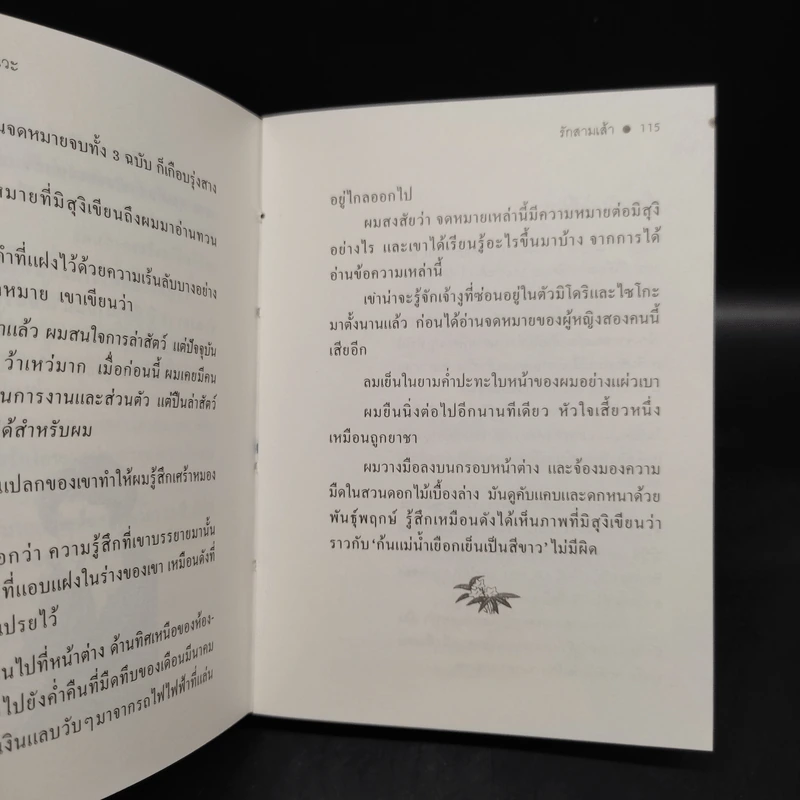 วะ
นจดหมายจบทั้ง 3 ฉบับ ก็เกือบรุ่งสาง
หมายที่มิสุงิเขียนถึงผมมาอ่านทวน
ำที่แฝงไว้ด้วยความเร้นลับบางอย่าง
หมาย เขาเขียนว่า
าแล้ว ผมสนใจการล่าสัตว์ แต่ปัจจุบัน
ว้าเหว่มาก เมื่อก่อนนี้ ผมเคยมีคน
นการงานและส่วนตัว แต่ปืนล่าสัตว์
ด้สำหรับผม
แปลกของเขาทำให้ผมรู้สึกเศร้าหมอง
อกว่า ความรู้สึกที่เขาบรรยายมานั้น
ที่แอบแฝงในร่างของเขา เหมือนดังที่
ปรยไว้
นไปที่หน้าต่าง ด้านทิศเหนือของห้อง-
ไปยังค่ำคืนที่มืดทึบของเดือนมีนาคม
งินแลบวับๆมาจากรถไฟไฟฟ้าที่แล่น
รักสามเส้า ● 115
อยู่ไกลออกไป
ผมสงสัยว่า จดหมายเหล่านี้มีความหมายต่อมิสุงิ
อย่างไร และเขาได้เรียนรู้อะไรขึ้นมาบ้าง จากการได้
อ่านข้อความเหล่านี้
เขาน่าจะรู้จักเจ้างูที่ซ่อนอยู่ในตัวมิโดริและไซโกะ
มาตั้งนานแล้ว ก่อนได้อ่านจดหมายของผู้หญิงสองคนนี้
เสียอีก
ลมเย็นในยามค่ำปะทะใบหน้าของผมอย่างแผ่วเบา
ผมยืนนิ่งต่อไปอีกนานทีเดียว หัวใจเสี้ยวหนึ่ง
เหมือนถูกยาชา
ผมวางมือลงบนกรอบหน้าต่าง และจ้องมองความ
มืดในสวนดอกไม้เบื้องล่าง มันดูคับแคบและดกหนาด้วย
พันธุ์พฤกษ์ รู้สึกเหมือนดังได้เห็นภาพที่มิสุงิเขียนว่า
ราวกับ‘ก้นแม่น้ำเยือกเย็นเป็นสีขาว’ไม่มีผิด